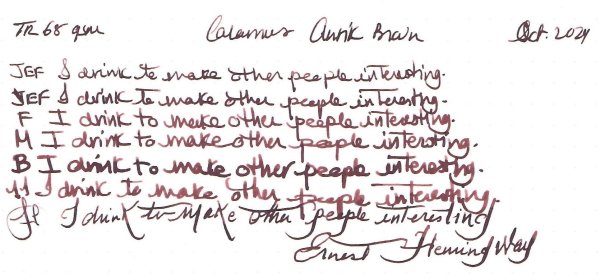 TR 68 gsm Calamus Antik Brown Oct. 2024
JEF I drink to make other people interesting.
JEF I drink to make other people interesting.
F I drink to make other people interesting.
M I drink to make other people interesting.
B I drink to make other people interesting.
1.1 I drink to make other people interesting.
I drink to make other people interesting
Ernest Hemingway